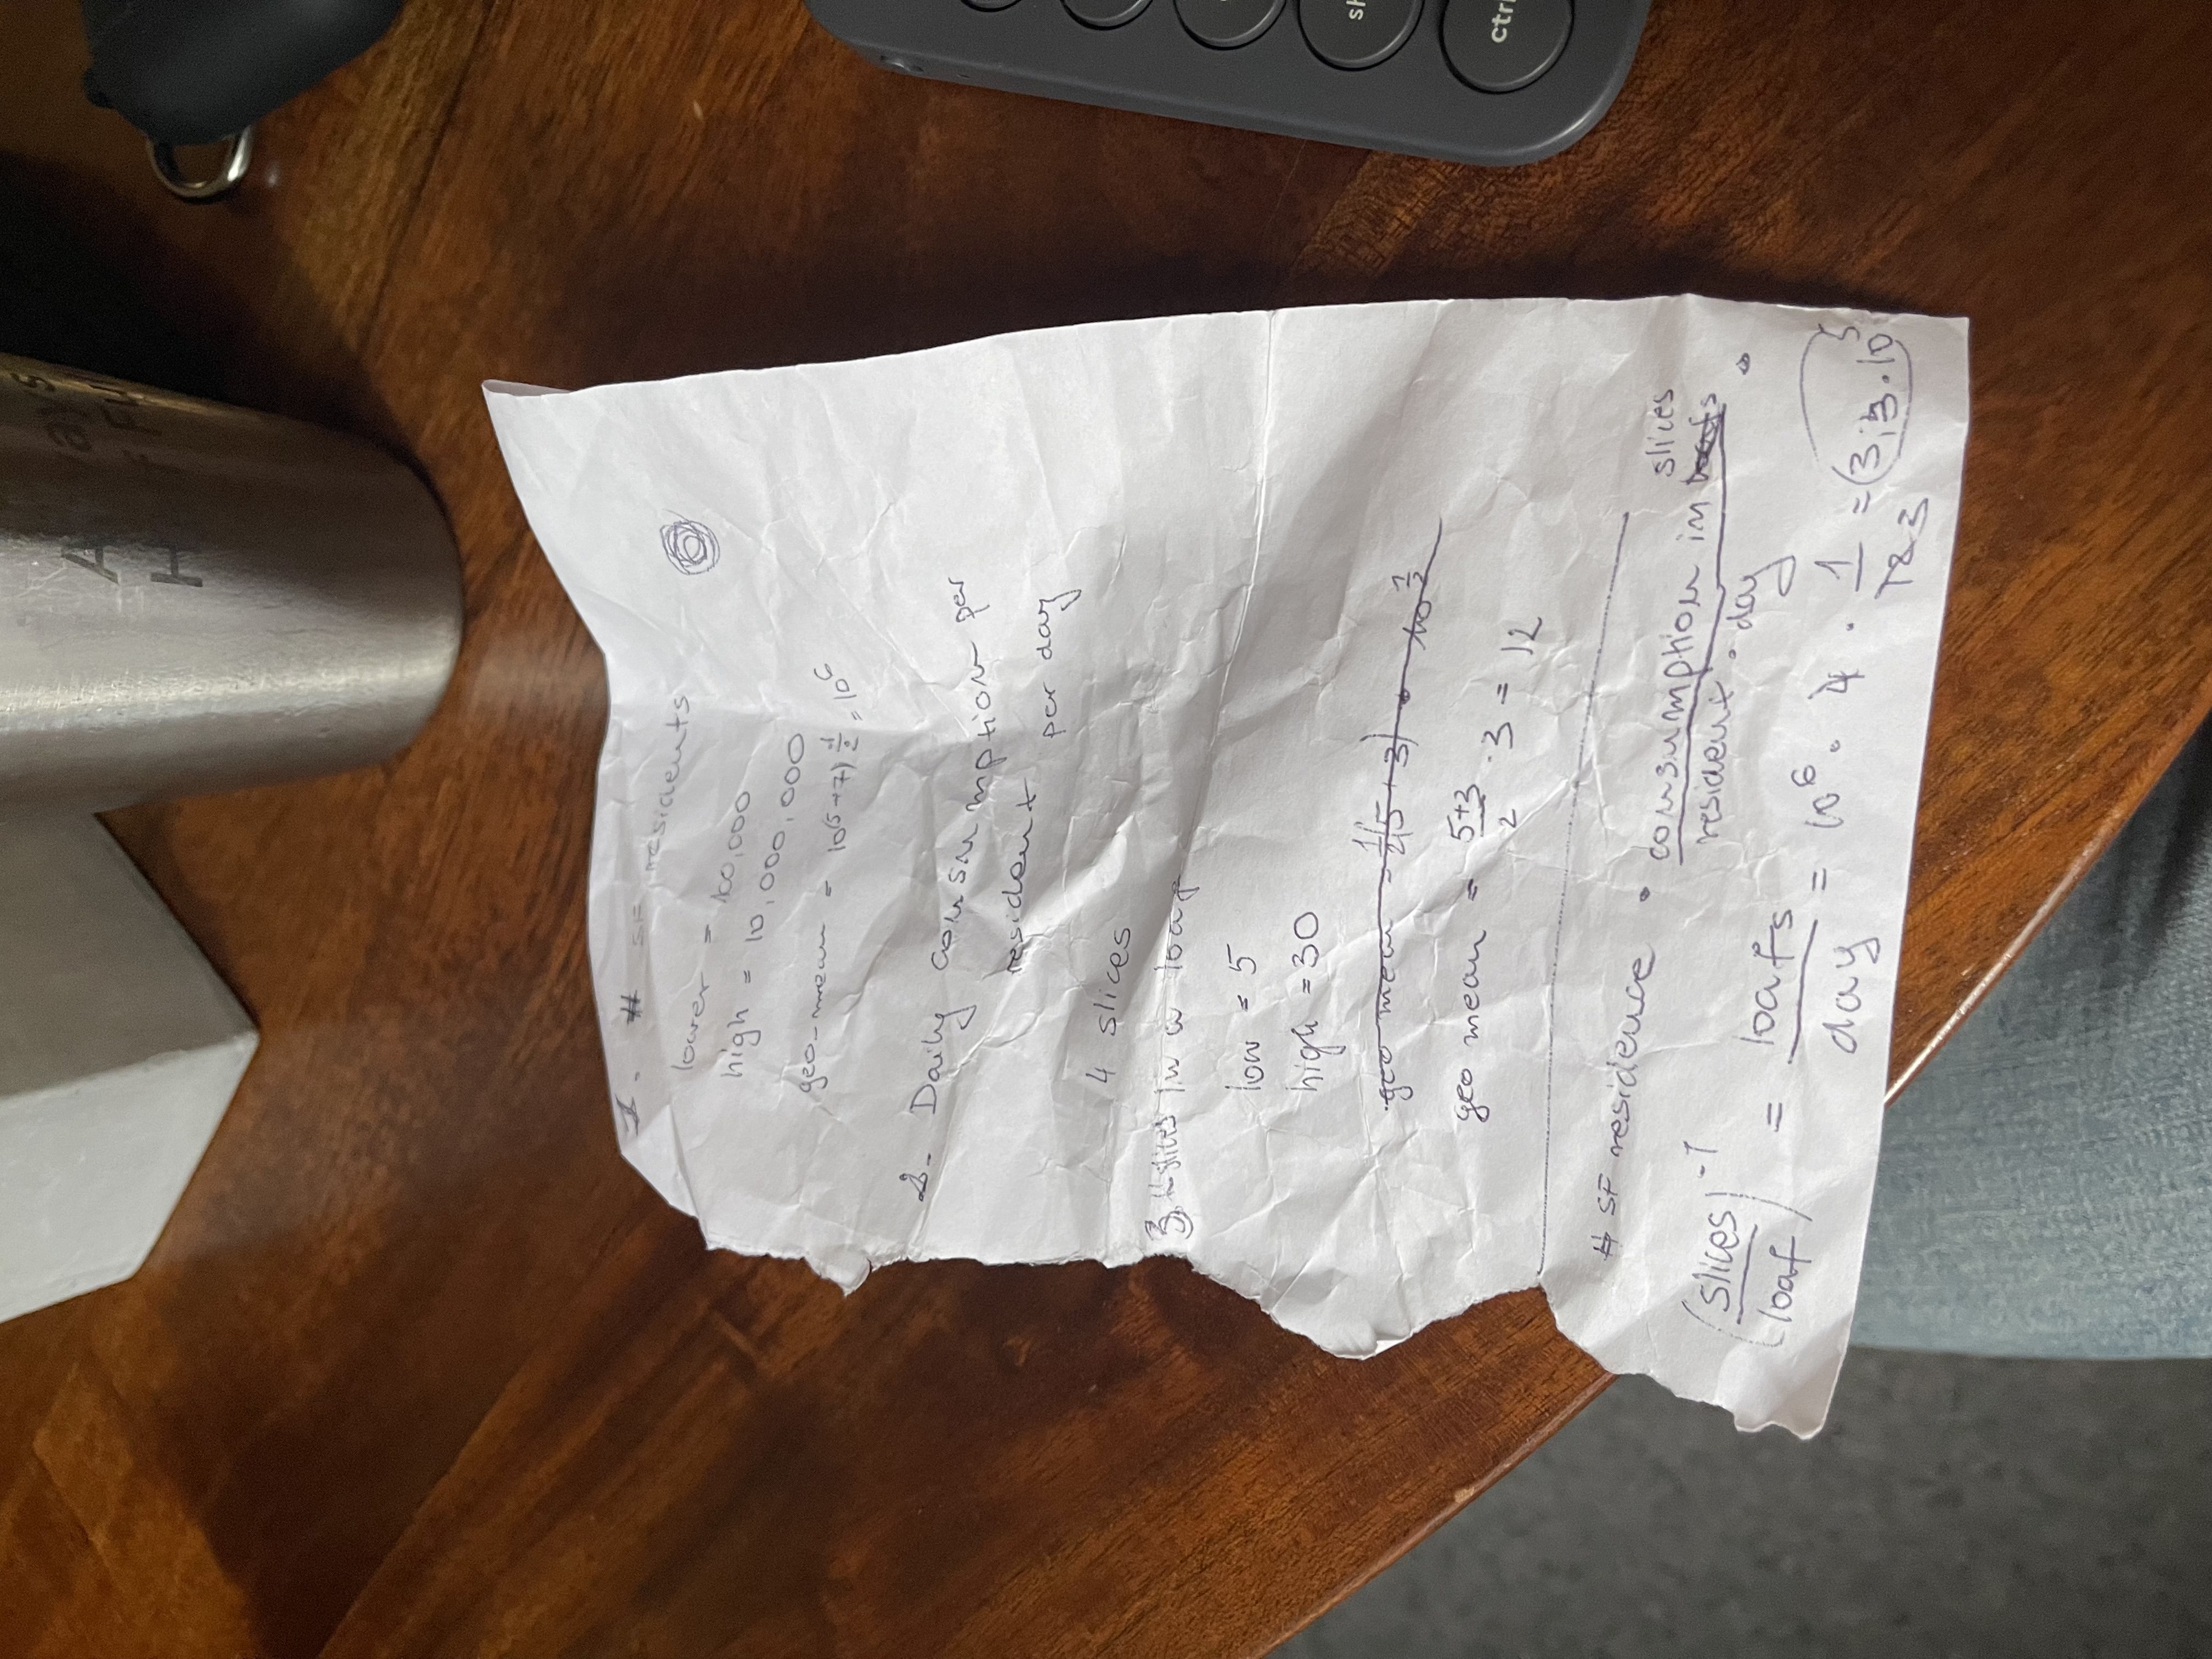 A ways
H f Fu
1. # SF residents
lower = 100,000
high = 10,000,000
geo-mean = 10(5+7) 1/2 = 10^6
2. Daily consumption per
resident
per day
4 slices
3. # slices in a loaf
low = 5
high = 30
geo mean = 1/2(5+3) • 10^1/2
geo mean = 5+3/2 · 3 = 12
# SF residence • consumption in loafs slices / resident · day •
(slices/loaf)^-1 = loafs/day = 10^6 · 4 · 1/12 3 = 3,3 · 10^5
sh
ctrl